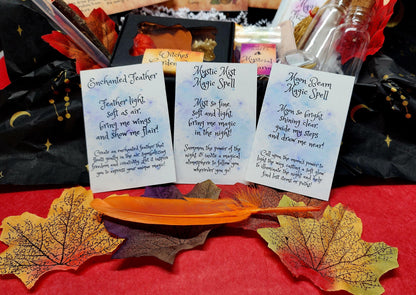 Witches
Garden
Mystical
Enchanted Feather
Feather light,
soft as air,
bring me wings
and show me flair!
Create an enchanted feather that
floats gently in the air, symbolizing
freedom and creativity. Let it inspire
you to express your unique magic.
Mystic Mist
Magic Spell
Mist so fine,
soft and light,
bring me magic
in the night!
Summon the power of the
night & write a magical
atmosphere to follow you
wherever you go
Moon Beam
Magic Spell
Moon so bright
shining clear,
guide my steps
and draw me near!
Call upon the moon's power to
light the way, casting a soft glow
to illuminate the night and help
find lost items or paths!